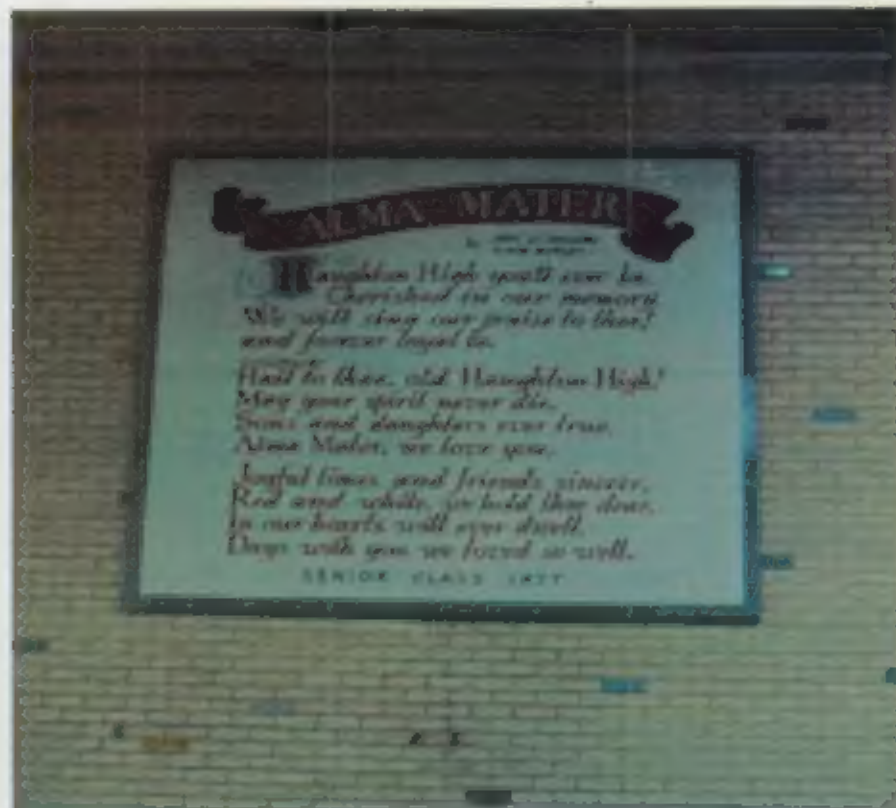 ALMA MATER
Haughton High you'll ever be
Cherished in our memory
We will sing our praise to thee!
and forever loyal be.
Hail to thee, old Haughton High!
May your spirit never die.
Sons and daughters ever true,
Alma Mater, we love you.
Joyful times and friends sincere,
Red and white, we hold thee dear.
In our hearts will ever dwell,
Days with you we loved so well.
SENIOR CLASS 1977